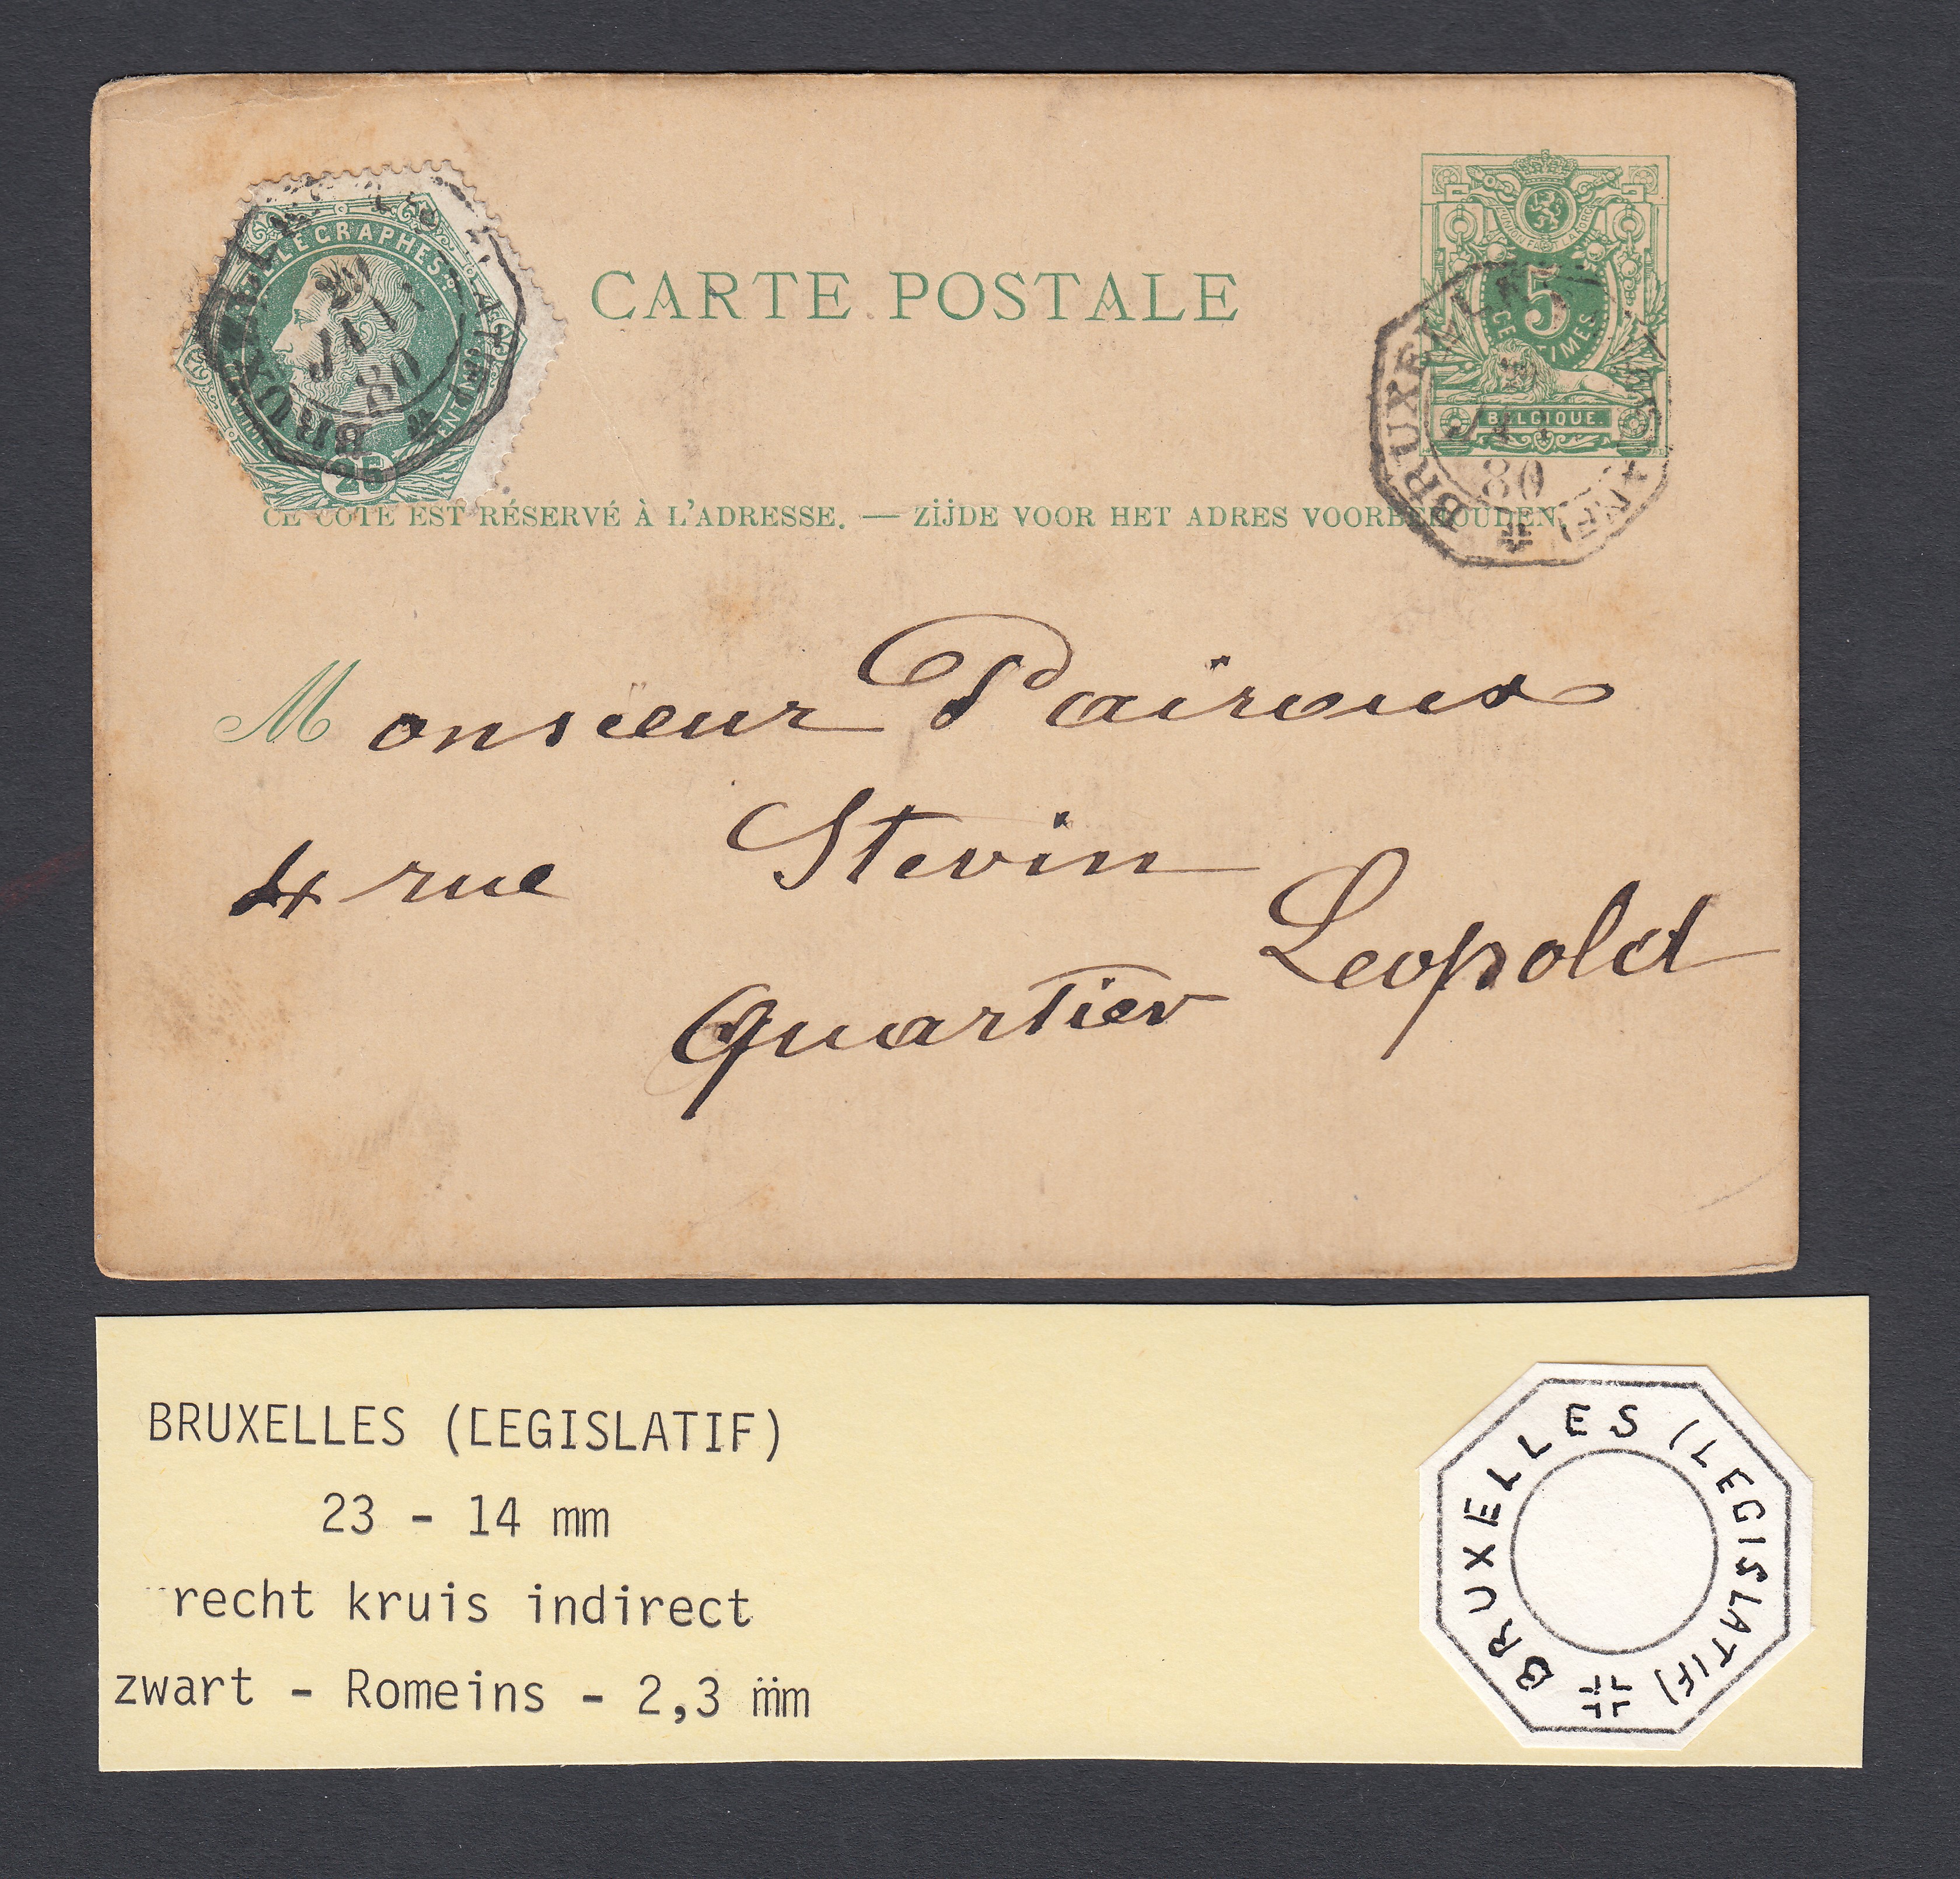 TELEGRAPHES
25
BRUXELLES
JAN
80
CARTE POSTALE
5
CENTIMES
BELGIQUE
BRUXELLES
80
CE COTE EST RÉSERVÉ À L'ADRESSE. — ZIJDE VOOR HET ADRES VOORBEHOUDEN.
Monsieur Pairoux
4 rue Stevin
Quartier Leopold
BRUXELLES (LEGISLATIF)
23 - 14 mm
recht kruis indirect
zwart - Romeins - 2,3 mm
BRUXELLES (LEGISLATIF)